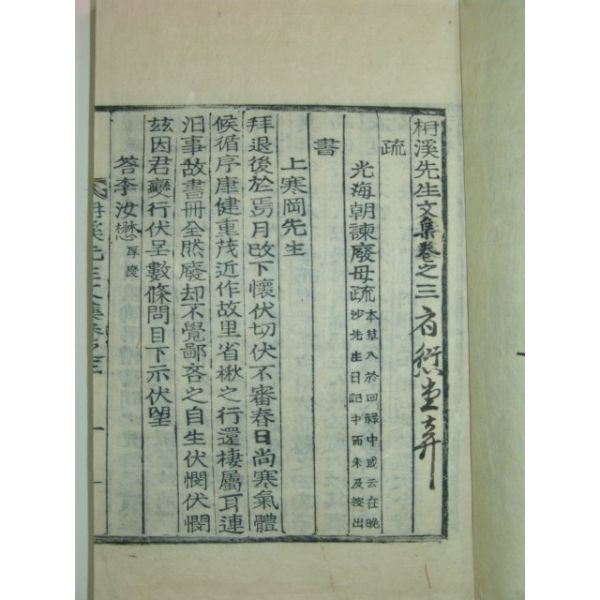 桐溪先生文集卷之三
疏
光海朝諫廢母疏 本草入於回祿中或云在晩
沙先生日記中而未及按出
書
上寒岡先生
拜退後於焉月改下懷伏切伏不審春日尚寒氣體
候循序康健重茂近作故里省楸之行還棲屬耳連
汨事故書冊全然廢却不覺鄙吝之自生伏憫伏憫
玆因君燮行伏呈數條問目下示伏望
答李汝懋 厚慶